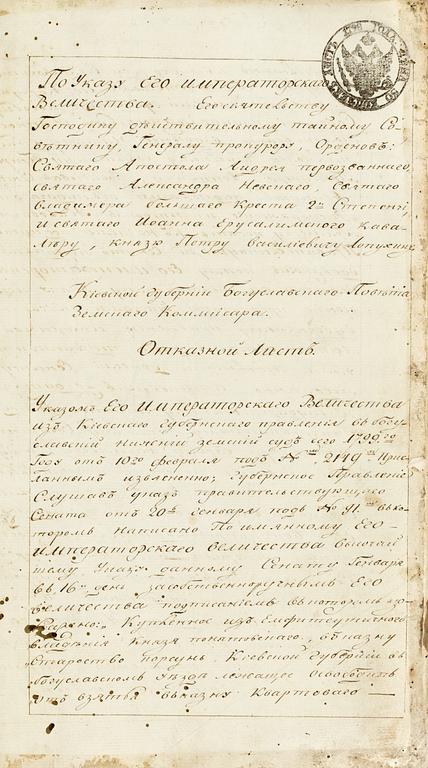 По Указу Его императорскаго
Величества. Его сиятельству
Господину действительному тайному Со-
вѣтнику, Генералу прокурору, Орденовъ:
Святаго Апостола Андрея первозваннаго,
святаго Александра Невскаго, святаго
владимера большаго креста 2й Степени,
и святаго Иоанна Ерусалимского Кава-
леру, князю Петру василиевичу Лопухину
Кіевской Губерніи Богуславскаго Повѣта
Земскаго Коммисара.
Отказной Листъ.
Указомъ Его Императорскаго Величества
изъ Кіевскаго Губернскаго правленья въ богу-
славский нижній земский судъ сего 1799го
Году отъ 10го февраля подъ № 2149 при-
сланнымъ изъяснено; губернское Правление
Слушавъ указъ правительствующаго
Сената отъ 20го генваря подъ № 91 въ ко-
торомъ написано По имянному Его
императорскаго величества высочай
шему указу данному Сенату Генваря
въ 16 день засобственноручнымъ Его
величества подписаніемъ въ которомъ изо-
бражено: Купленное изъ Емфитеутичнаго
владѣния Князя понятовскаго, в казну
Староство корсунь, Киевской Губерніи въ
богуславскомъ уѣзде лежащее освободить
отъ взятья въ казну Квартоваго —